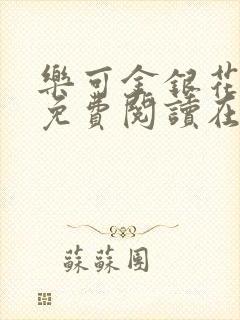 樂可金銀花
免費閱讀在
蘇蘇團